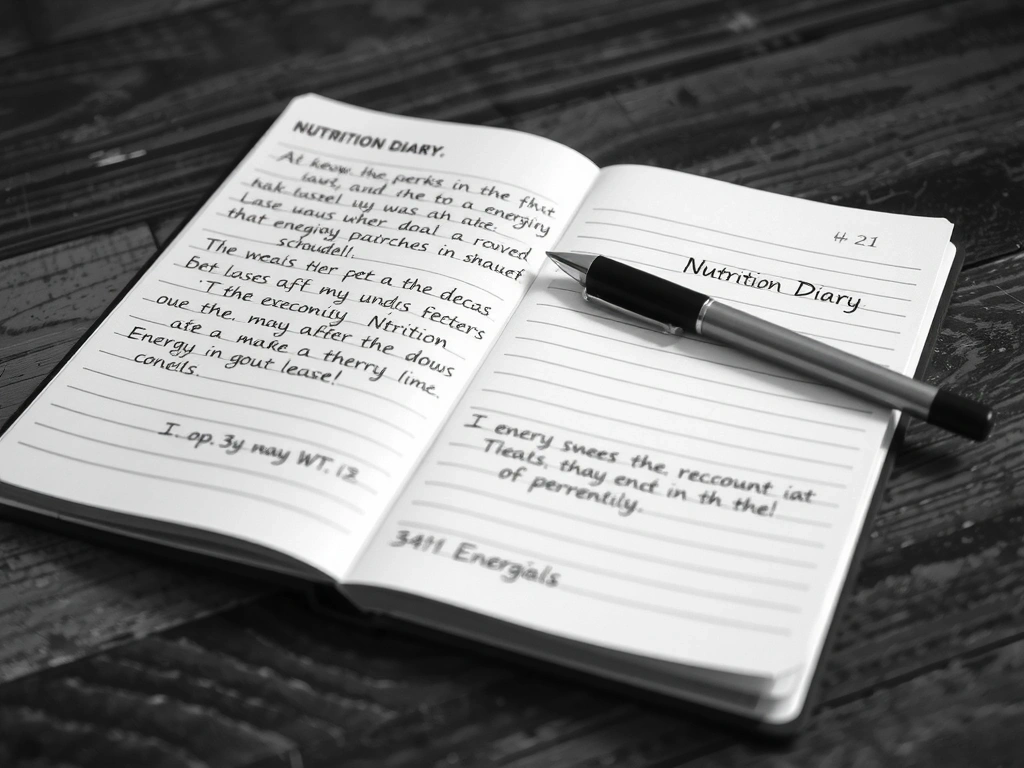 NUTRITION DIARY.
At keow the perks in the fhat
laust, and the to a energiny
hak tuszel uy was ah ake.
Lase uaus wher doal a rouved
that enegiay pairches in shauef
schoudell.
The weals Her pet a the decas
Bet lases aff my undis fecters
T the execonuiy Ntrition
oue the may after the dows
ate a make a therry lime.
Energy in gout lease!
conells.
I. op. 3y nay WT. 12
# 21
Nutrition Diary
I enery swees the reccount iat
Tleats, thay enct in th the!
of perrentily.
3411 Energials